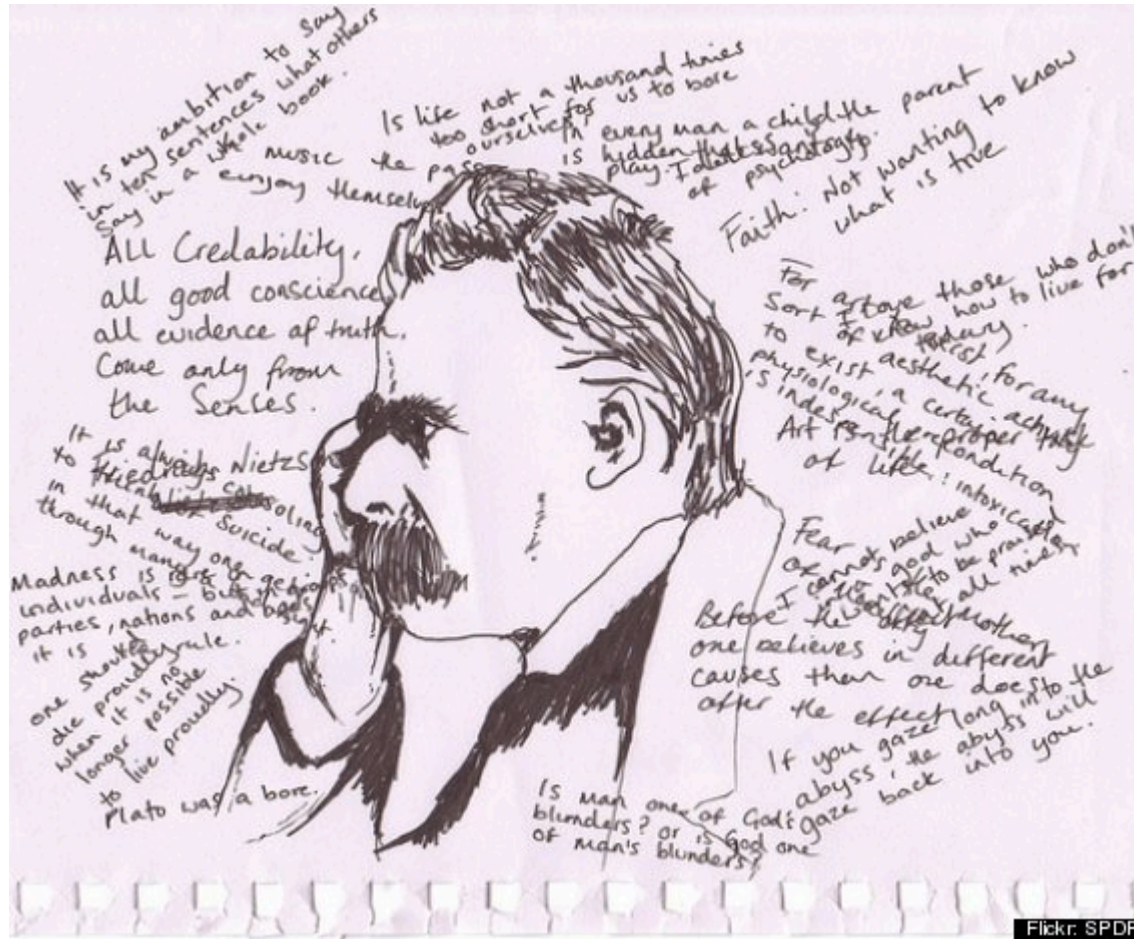 It is my ambition to say
in ten sentences what others
say in a whole book.
Is life not a thousand times
too short for us to bore
ourselves
music the pass
enjoy themselv
In every man a child
is hidden that wants to
play.
the parent
of psychology.
Faith: Not wanting to know
what is true
All Credability,
all good conscience
all evidence of truth.
Come only from
the Senses.
those who don't
know how to live for
today.
For
to exist, for any
Sort of aesthetic activity
to exist, a certain
physiological
is indespensible: intoxicat
Art is the proper task
of life.
It is always consoling
to think of suicide:
in that way one gets
through many a
Friedrich Nietzs
Madness is rare in
individuals - but in groups
parties, nations and
it is
rule.
one should
die proudly
when it is no
longer possible
to live proudly.
Plato was a bore.
I cannot believe
in a god who
wants to be praised
all times.
Fear
of
mother
Before the effect
one believes in different
causes than one does
after the effect
If you gaze long into the
abyss, the abyss will
gaze back into you.
Is Man one of God's
blunders? or is God one
of man's blunders?
Flickr: SPDP